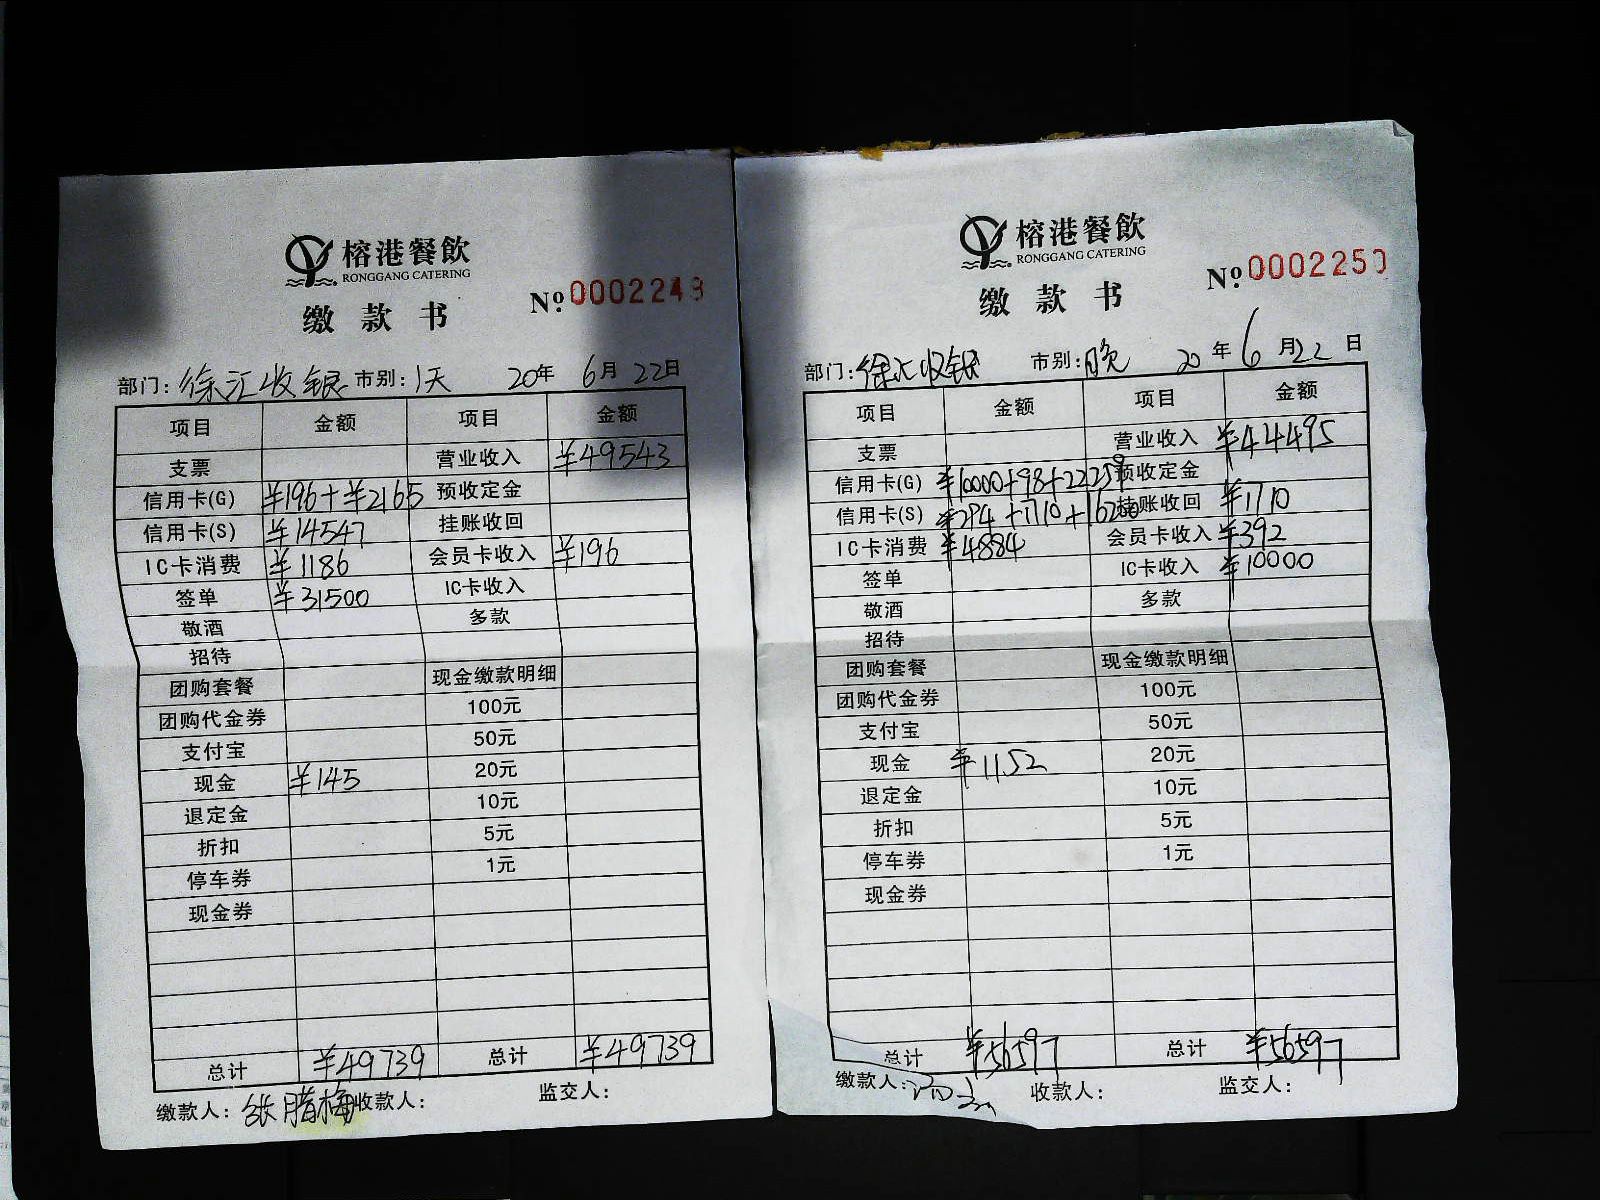 榕港餐飲
RONGGANG CATERING
缴款书 №0002249
部门:徐汇收银 市别:1天 20年 6月 22日
项目 金额 项目 金额
支票 营业收入 ¥49543
信用卡(G) ¥196+¥2165 预收定金
信用卡(S) ¥14547 挂账收回
IC卡消费 ¥1186 会员卡收入 ¥196
签单 ¥31500 IC卡收入
敬酒 多款
招待
团购套餐 现金缴款明细
团购代金券 100元
支付宝 50元
现金 ¥145 20元
退定金 10元
折扣 5元
停车券 1元
现金券
总计 ¥49739 总计 ¥49739
缴款人:张腊梅 收款人: 监交人:
榕港餐飲
RONGGANG CATERING
缴款书 №0002250
部门:徐汇收银 市别:晚 20年 6月22日
项目 金额 项目 金额
支票 营业收入 ¥44495
信用卡(G) ¥10000+98+22259 预收定金
信用卡(S) ¥294+1710+16200 挂账收回 ¥1710
IC卡消费 ¥4884 会员卡收入 ¥392
签单 IC卡收入 ¥10000
敬酒 多款
招待
团购套餐 现金缴款明细
团购代金券 100元
支付宝 50元
现金 ¥1152 20元
退定金 10元
折扣 5元
停车券 1元
现金券
总计 ¥56597 总计 ¥56597
缴款人: 收款人: 监交人: